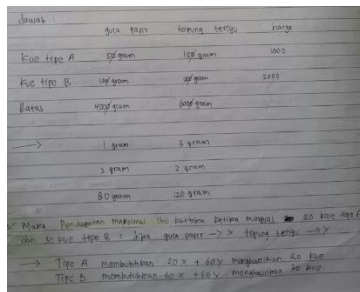 dawab :
gula pasir tepung terigu harga
Kue tipe A 50 gram 150 gram 1000
Kue tipe B 100 gram 100 gram 2000
Batas 4000 gram 6000 gram
→ 1 gram 3 gram
2 gram 2 gram
80 gram 120 gram
Maka Pendapatan maksimal ibu kartika ketika menjual 20 kue tipe A
dan 30 kue tipe B. Jika gula pasir → x tepung terigu → y
→ Tipe A membutuhkan 20x + 60y menghasilkan 20 kue
Tipe B membutuhkan 60x + 60y menghasilkan 30 kue